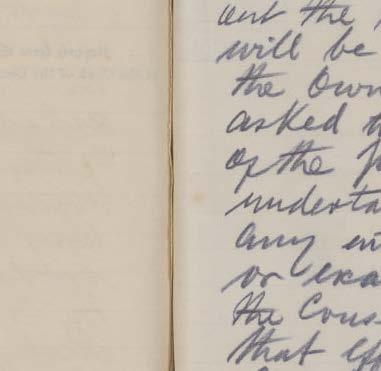 out the
will be
the Own
asked t
of the f
understa
any in
or exa
the Cons
that eff